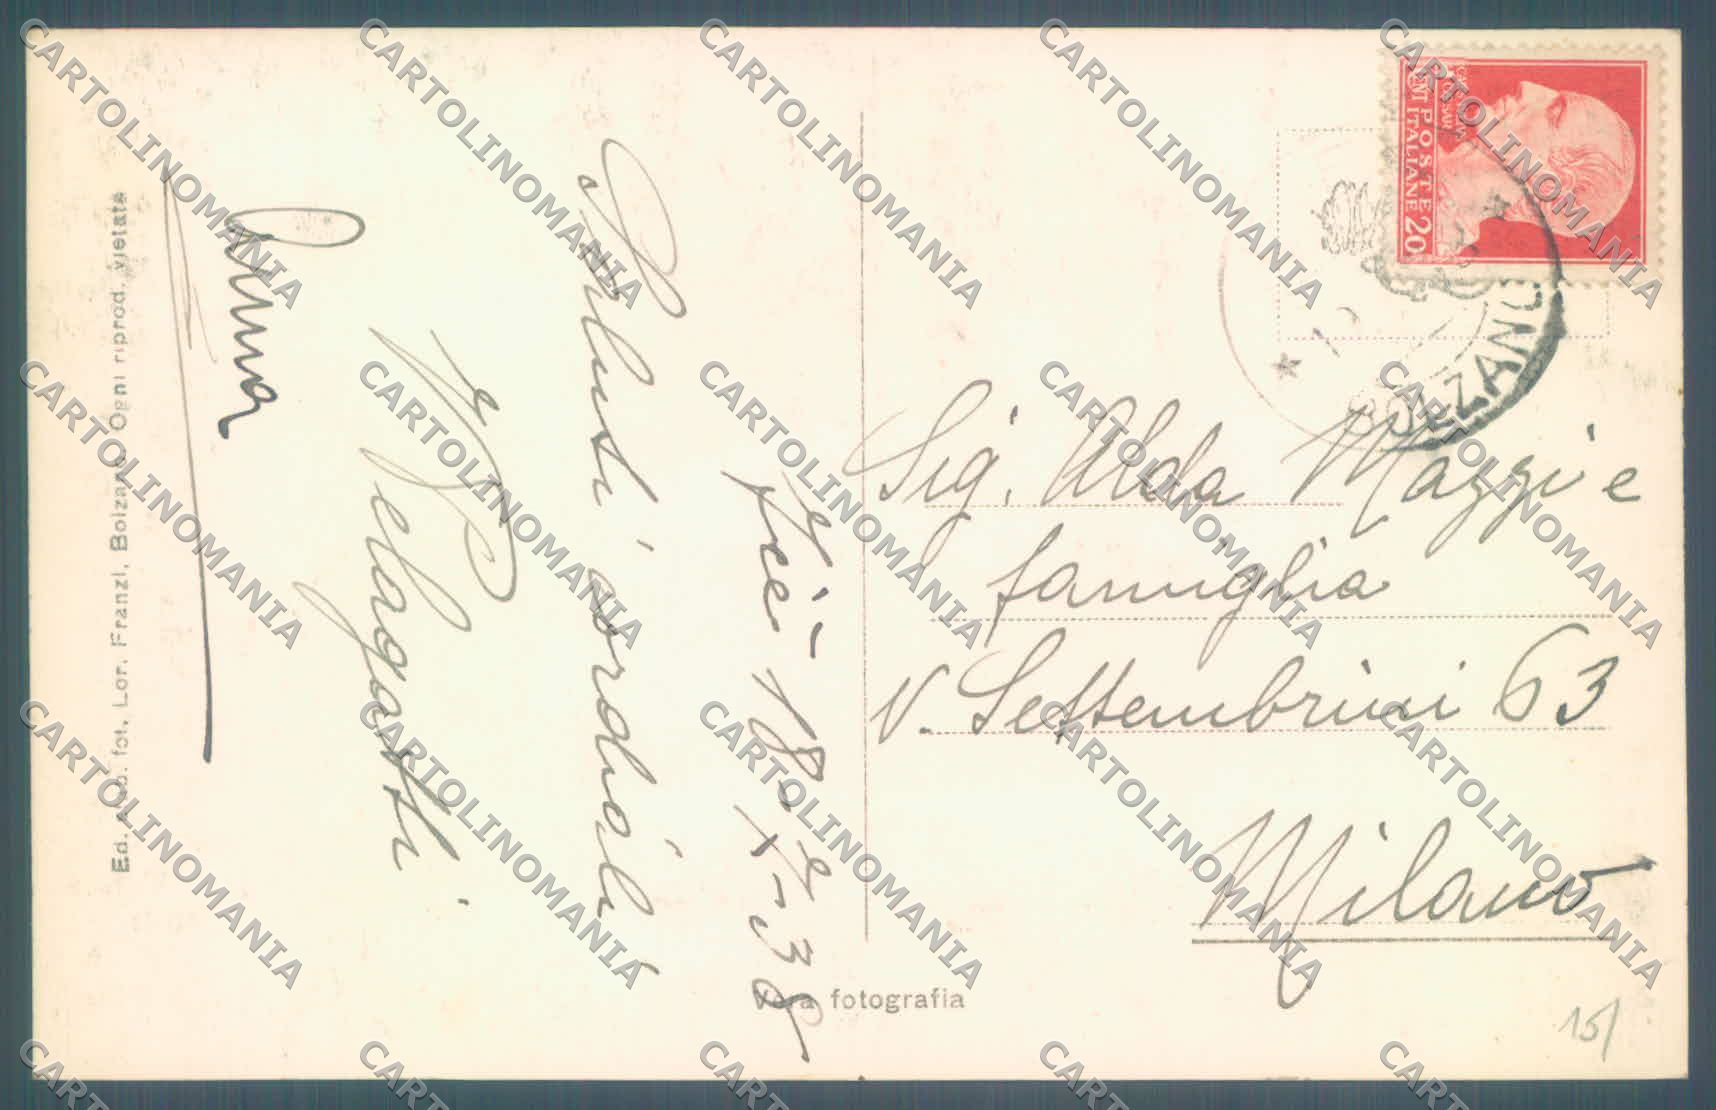 Fiè - 18-X-38
Saluti cordiali
Pelagatti
Anna
Sig. Alda Mazzi e
famiglia
V. Settembrini 63
Milano
15/
Vera fotografia
Ed. fot. Lor. Franzl, Bolzano Ogni riprod. vietata
POSTE
ITALIANE 20
CENT
BOLZANO
CARTOLINOMANIA